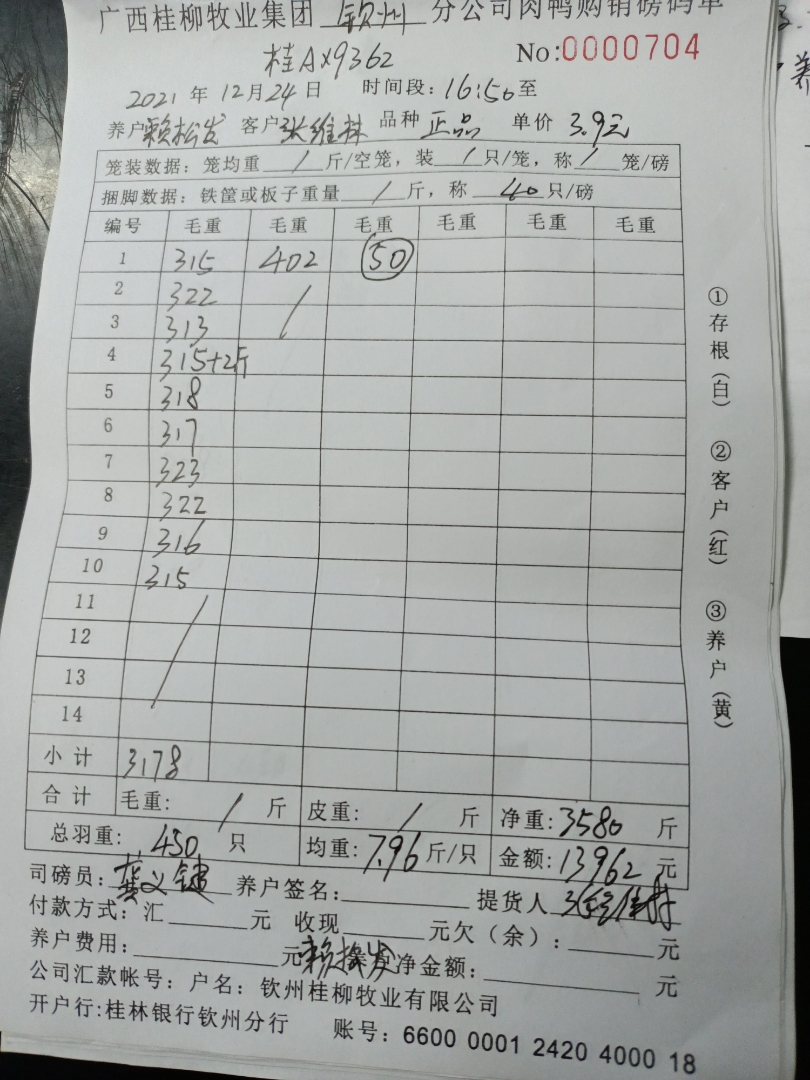 广西桂柳牧业集团 钦州 分公司肉鸭购销磅码单
桂AX9362 No:0000704
2021 年 12月 24 日 时间段: 16:50 至
养户 赖松发 客户 张维林 品种 正品 单价 3.9元
笼装数据: 笼均重 / 斤/空笼, 装 / 只/笼, 称 / 笼/磅
捆脚数据: 铁筐或板子重量 / 斤, 称 40 只/磅
编号 毛重 毛重 毛重 毛重 毛重 毛重
1 315 402 50
2 322 /
3 313
4 315+2斤
5 318
6 317
7 323
8 322
9 316
10 315
11 /
12
13
14
小计 3178
合计 毛重: / 斤 皮重: / 斤 净重: 3580 斤
总羽重: 450 只 均重: 7.96 斤/只 金额: 13962 元
司磅员: 龚义键 养户签名: 提货人
付款方式: 汇 元 收现 元欠(余): 元
养户费用: 元 净金额: 元
公司汇款帐号: 户名: 钦州桂柳牧业有限公司
开户行:桂林银行钦州分行 账号: 6600 0001 2420 4000 18
①存根(白) ②客户(红) ③养户(黄)